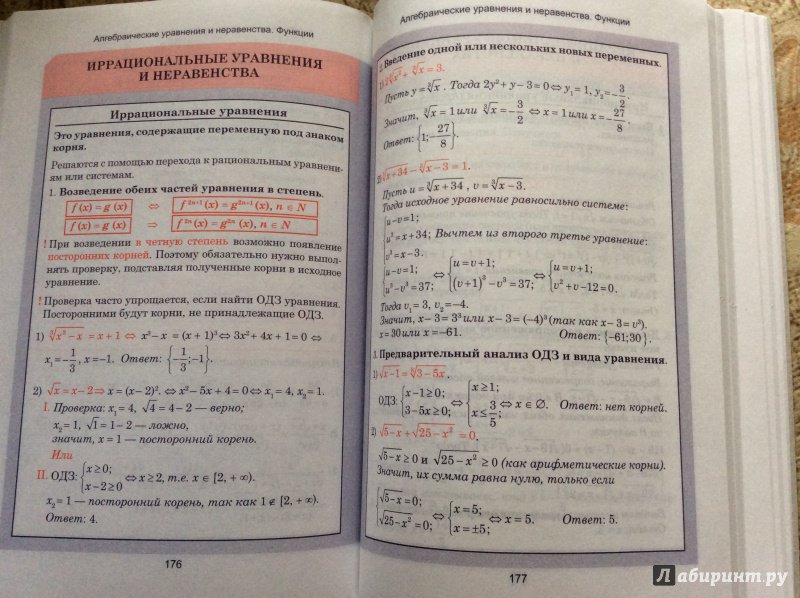 Алгебраические уравнения и неравенства. Функции
ИРРАЦИОНАЛЬНЫЕ УРАВНЕНИЯ
И НЕРАВЕНСТВА
Иррациональные уравнения
Это уравнения, содержащие переменную под знаком
корня.
Решаются с помощью перехода к рациональным уравнени-
ям или системам.
1. Возведение обеих частей уравнения в степень.
f (x) = g (x) ⇔ f²ⁿ⁺¹ (x) = g²ⁿ⁺¹ (x), n ∈ N
f (x) = g (x) ⇒ f²ⁿ (x) = g²ⁿ (x), n ∈ N
! При возведении в четную степень возможно появление
посторонних корней. Поэтому обязательно нужно выпол-
нять проверку, подставляя полученные корни в исходное
уравнение.
! Проверка часто упрощается, если найти ОДЗ уравнения.
Посторонними будут корни, не принадлежащие ОДЗ.
1) ∛(x³ − x) = x + 1 ⇔ x³ − x = (x + 1)³ ⇔ 3x² + 4x + 1 = 0 ⇔
x₁ = −1/3, x = −1. Ответ: {−1/3; −1}.
2) √x = x − 2 ⇒ x = (x − 2)². ⇔ x² − 5x + 4 = 0 ⇔ x₁ = 4, x₂ = 1.
I. Проверка: x₁ = 4, √4 = 4 − 2 — верно;
x₂ = 1, √1 = 1 − 2 — ложно,
значит, x = 1 — посторонний корень.
Или
II. ОДЗ: {x ≥ 0; x − 2 ≥ 0 ⇔ x ≥ 2, т.е. x ∈ [2, + ∞).
x₂ = 1 — посторонний корень, так как 1 ∉ [2, + ∞).
Ответ: 4.
176
Алгебраические уравнения и неравенства. Функции
Введение одной или нескольких новых переменных.
Пусть y = ∛x. Тогда 2y² + y − 3 = 0 ⇔ y₁ = 1, y₂ = −3/2.
Значит, ∛x = 1 или ∛x = −3/2 ⇔ x = 1 или x = −27/8.
Ответ: {1; −27/8}.
2) ∛(x + 34) − ∛(x − 3) = 1.
Пусть u = ∛(x + 34), v = ∛(x − 3).
Тогда исходное уравнение равносильно системе:
{u − v = 1;
u³ = x + 34; Вычтем из второго третье уравнение:
v³ = x − 3.
{u − v = 1; u³ − v³ = 37; ⇔ {u = v + 1; (v + 1)³ − v³ = 37; ⇔ {u = v + 1; v² + v − 12 = 0.
Тогда v₁ = 3, v₂ = −4.
Значит, x − 3 = 3³ или x − 3 = (−4)³ (так как x − 3 = v³).
x = 30 или x = −61. Ответ: {−61; 30}.
3. Предварительный анализ ОДЗ и вида уравнения.
ОДЗ: {x − 1 ≥ 0; 3 − 5x ≥ 0; ⇔ {x ≥ 1; x ≤ 3/5; ⇔ x ∈ ∅. Ответ: нет корней.
2) √(5 − x) + √(25 − x²) = 0.
√(5 − x) ≥ 0 и √(25 − x²) ≥ 0 (как арифметические корни).
Значит, их сумма равна нулю, только если
{√(5 − x) = 0; √(25 − x²) = 0; ⇔ {x = 5; x = ±5; ⇔ x = 5. Ответ: 5.
177
Лабиринт.ру